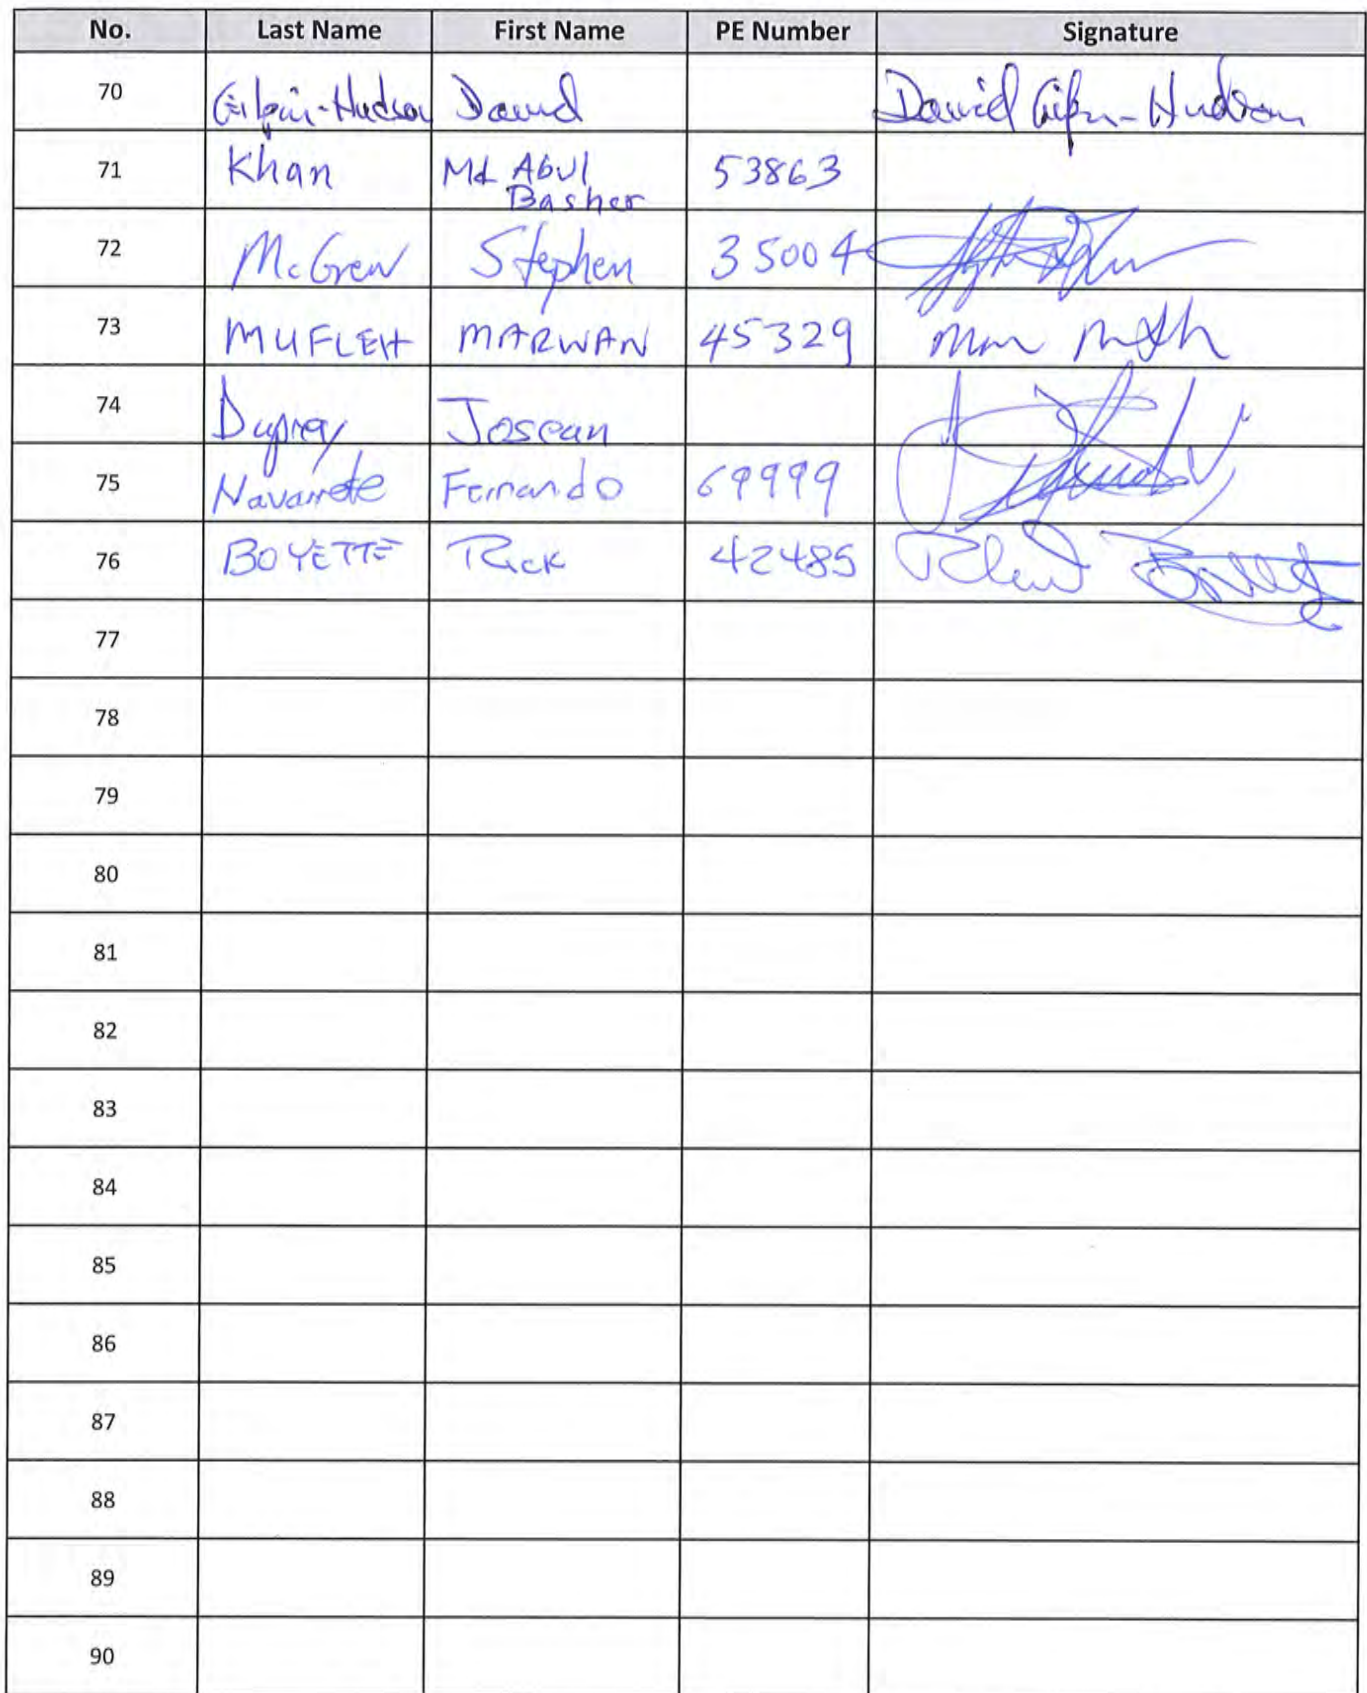 No. Last Name First Name PE Number Signature
70 Gilpin-Hudson David David Gilpin-Hudson
71 Khan Md Abul
Basher 53863
72 McGrew Stephen 35004
73 MUFLEH MARWAN 45329
74 Duprey Josean
75 Navarrete Fernando 69999
76 BOYETTE Rick 42485
77
78
79
80
81
82
83
84
85
86
87
88
89
90